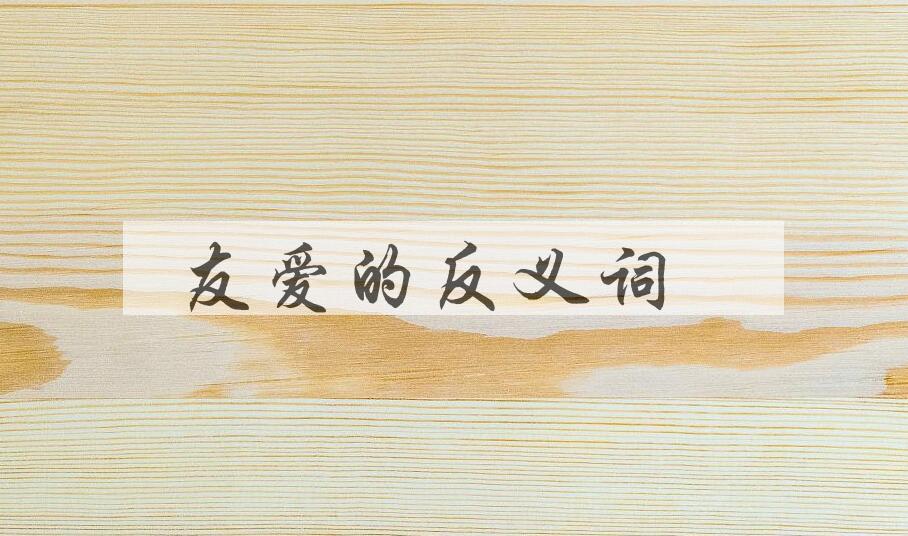 友爱的反义词